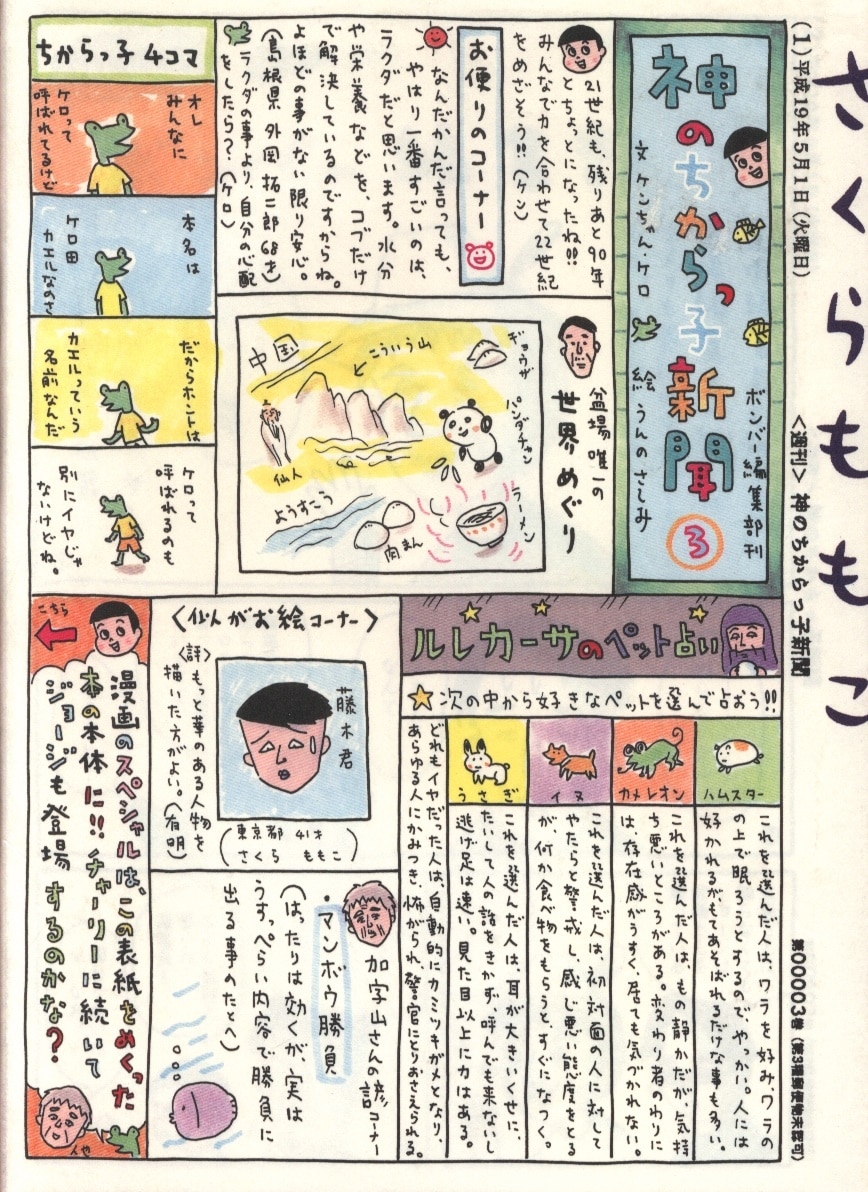 さくらももこ
(1)平成19年5月1日(火曜日)
<週刊>神のちからっ子新聞
第00003巻(第3種郵便物未認可)
神のちからっ子新聞
3
文 ケンちゃん・ケロ
絵 うんのさしみ
ボンバー編集部刊
21世紀も、残りあと90年
とちょっとになったね!!
みんなで力を合わせて22世紀
をめざそう!!(ケン)
お便りのコーナー
なんだかんだ言っても、
やはり一番すごいのは、
ラクダだと思います。水分
や栄養などを、コブだけ
で解決しているのですからね。
よほどの事がない限り安心。
(島根県 外岡拓二郎 68才)
ラクダの事より、自分の心配
をしたら?(ケロ)
ちからっ子4コマ
オレ
みんなに
ケロって
呼ばれてるけど
本名は
ケロ田
カエルなのさ
だからホントは
カエルっていう
名前なんだ
ケロって
呼ばれるのも
別にイヤじゃ
ないけどね。
盆場唯一の
世界めぐり
中国
こういう山
ギョウザ
パンダチャン
仙人
ようすこう
肉まん
ラーメン
ルレカーサのペット占い
次の中から好きなペットを選んで占おう!!
ハムスター
これを選んだ人は、ワラを好み、ワラの
上で眠ろうとするので、やっかい。人には
好かれるがもてあそばれるだけな事も多い。
カメレオン
これを選んだ人は、もの静かだが、気持
ち悪いところがある。変わり者のわりに
は、存在感がうすく、居ても気づかれない。
イヌ
これを選んだ人は、初対面の人に対して
やたらと警戒し、感じ悪い態度をとる
が、何か食べ物をもらうと、すぐになつく。
うさぎ
これを選んだ人は、耳が大きいくせに、
たいして人の話をきかず、呼んでも来ないし
逃げ足は速い。見た目以上に力はある。
どれもイヤだった人は、自動的にカミツキガメとなり、
あらゆる人にかみつき、怖がられ、警官にとりおさえられる。
<似がお絵コーナー>
藤木君
(東京都 41才
さくらももこ)
<評>もっと華のある人物を
描いた方がよい。(有明)
加字山さんの諺コーナー
・マンボウ勝負
(はったりは効くが、実は
うすっぺらい内容で勝負に
出る事のたとへ)
こちら
漫画のスペシャルは、この表紙をめくった
本の本体に!!チャーリーに続いて
ジョージも登場するのかな?